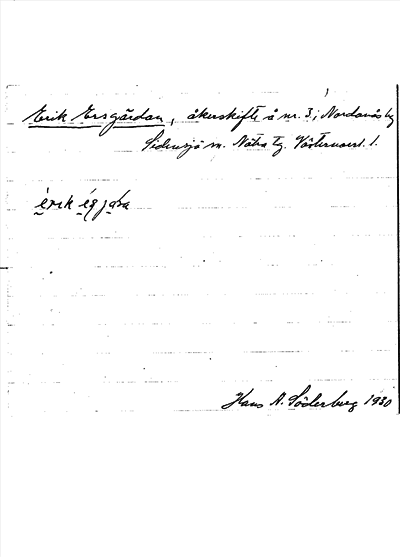 Erik Ersgårdan, åkerskifte å nr. 3, i Nordanås by
Sidensjö sn. Nätra tg. Västernorrl. l.
Hans A. Söderberg 1930